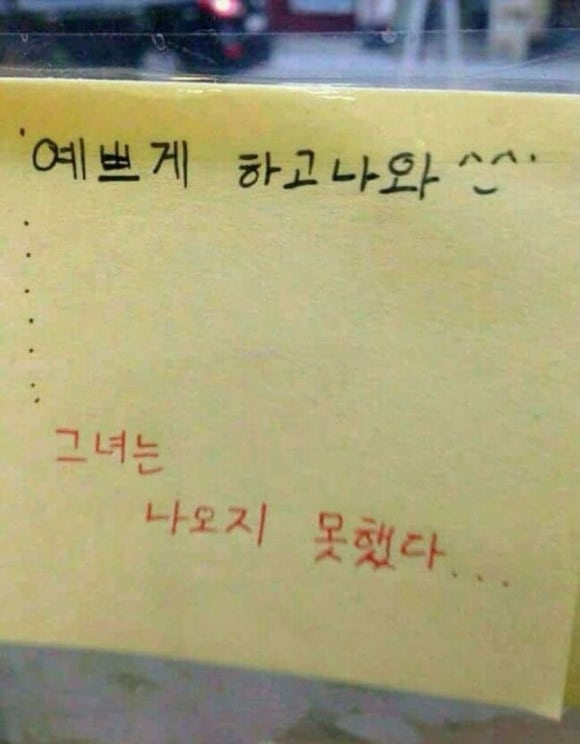 예쁘게 하고나와 ^_^
그녀는
나오지 못했다...